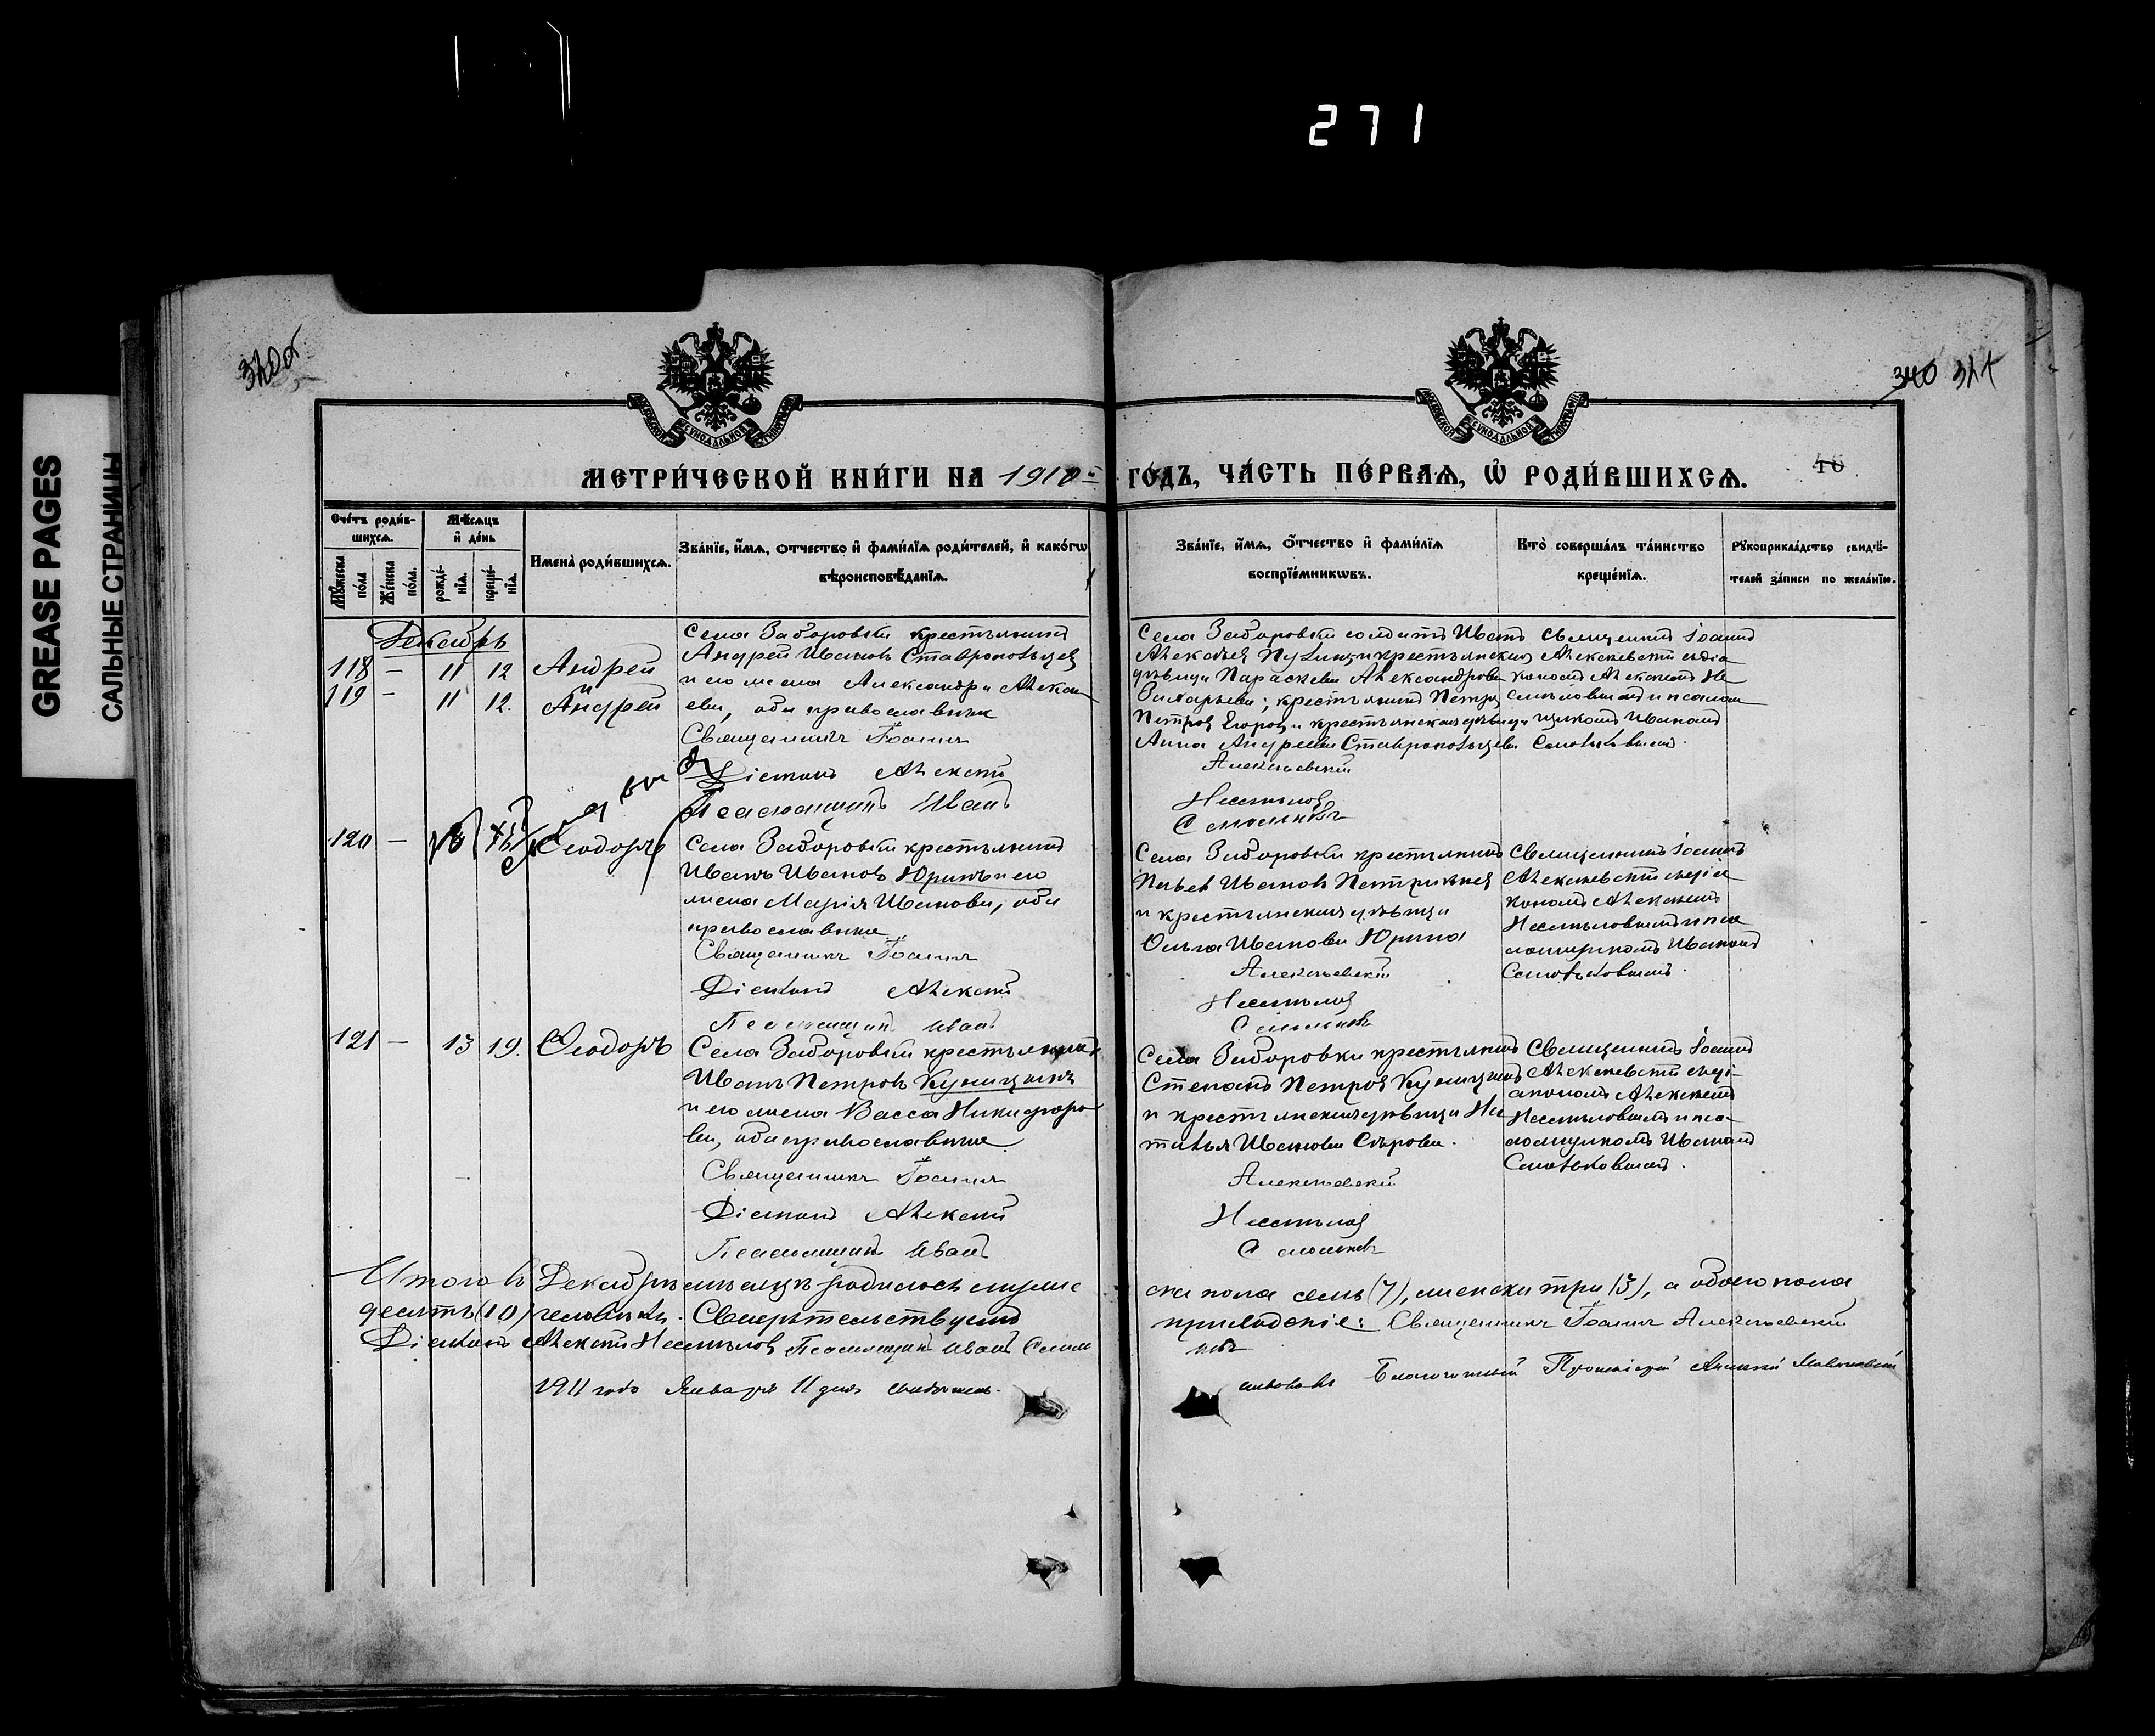 271
GREASE PAGES
САЛЬНЫЕ СТРАНИЦЫ
340
МЕТРИЧЕСКОЙ КНИГИ НА 1910 ГОДЪ, ЧАСТЬ ПЕРВАЯ, Ѡ РОДИВШИХСЯ.
Счетъ родившихся.
Мужеска пола
Женска пола.
Мѣсяцъ и день
рожденія.
крещенія.
Имена родившихся.
Званіе, имя, отчество и фамилія родителей, и какогѡ
вѣроисповѣданія.
Званіе, имя, отчество и фамилія
воспріемниковъ.
Кто совершалъ таинство
крещенія.
Рукоприкладство свидѣтелей записи по желанію.
Декабрь
118 — 11 12 Андрей
119 — 11 12. Андрей
Села Заборовки крестьянинъ
Андрей Ивановъ Ставропольцев
и его жена Александра Алексе
ева, оба православные
Священникъ Іоаннъ
Діаконъ Алексѣй
Псаломщикъ Иванъ
Села Заборовки солдатъ Иванъ
дѣвица Параскева Александрова
Захарьева; крестьянинъ Петръ
Петровъ Егоровъ и крестьянская дѣвица
Анна Андреева Ставропольцева
Алексѣевскій
Несмѣловъ
Священникъ Іоаннъ
Алексѣевскій съ діа
кономъ Алексѣемъ Не
смѣловымъ и псалом
щикомъ Иваномъ
120 — Ѳеодоръ
Села Заборовки крестьянинъ
Иванъ Ивановъ Юринъ и его
жена Марія Иванова, оба
православные
Священникъ Іоаннъ
Діаконъ Алексѣй
Псаломщикъ Иванъ
Села Заборовки крестьянинъ
Павелъ Ивановъ
и крестьянская дѣвица
Ольга Иванова Юрина
Алексѣевскій
Несмѣловъ
Священникъ Іоаннъ
Алексѣевскій съ діа
кономъ Алексѣемъ
Несмѣловымъ и пса
ломщикомъ Иваномъ
121 — 13 19. Ѳеодоръ
Села Заборовки крестьянинъ
Иванъ Петровъ Куницынъ
и его жена Васса Никифоро
ва, оба православные
Священникъ Іоаннъ
Діаконъ Алексѣй
Псаломщикъ Иванъ
Села Заборовки крестьянинъ
Степанъ Петровъ Куницынъ
и крестьянская дѣвица На
талья Иванова Сѣрова.
Алексѣевскій
Несмѣловъ
Священникъ Іоаннъ
Алексѣевскій съ ді
акономъ Алексѣемъ
Несмѣловымъ и пса
ломщикомъ Иваномъ
Итого въ Декабрѣ мѣсяцѣ родилось муже
ска пола семь (7), женска три (3), а обоего пола
десять (10) человѣкъ. Свидѣтельствуютъ
Священникъ Іоаннъ Алексѣевскій
Діаконъ Алексѣй Несмѣловъ Псаломщикъ Иванъ
1911 года Января 11 дня
Благочинный Протоіерей